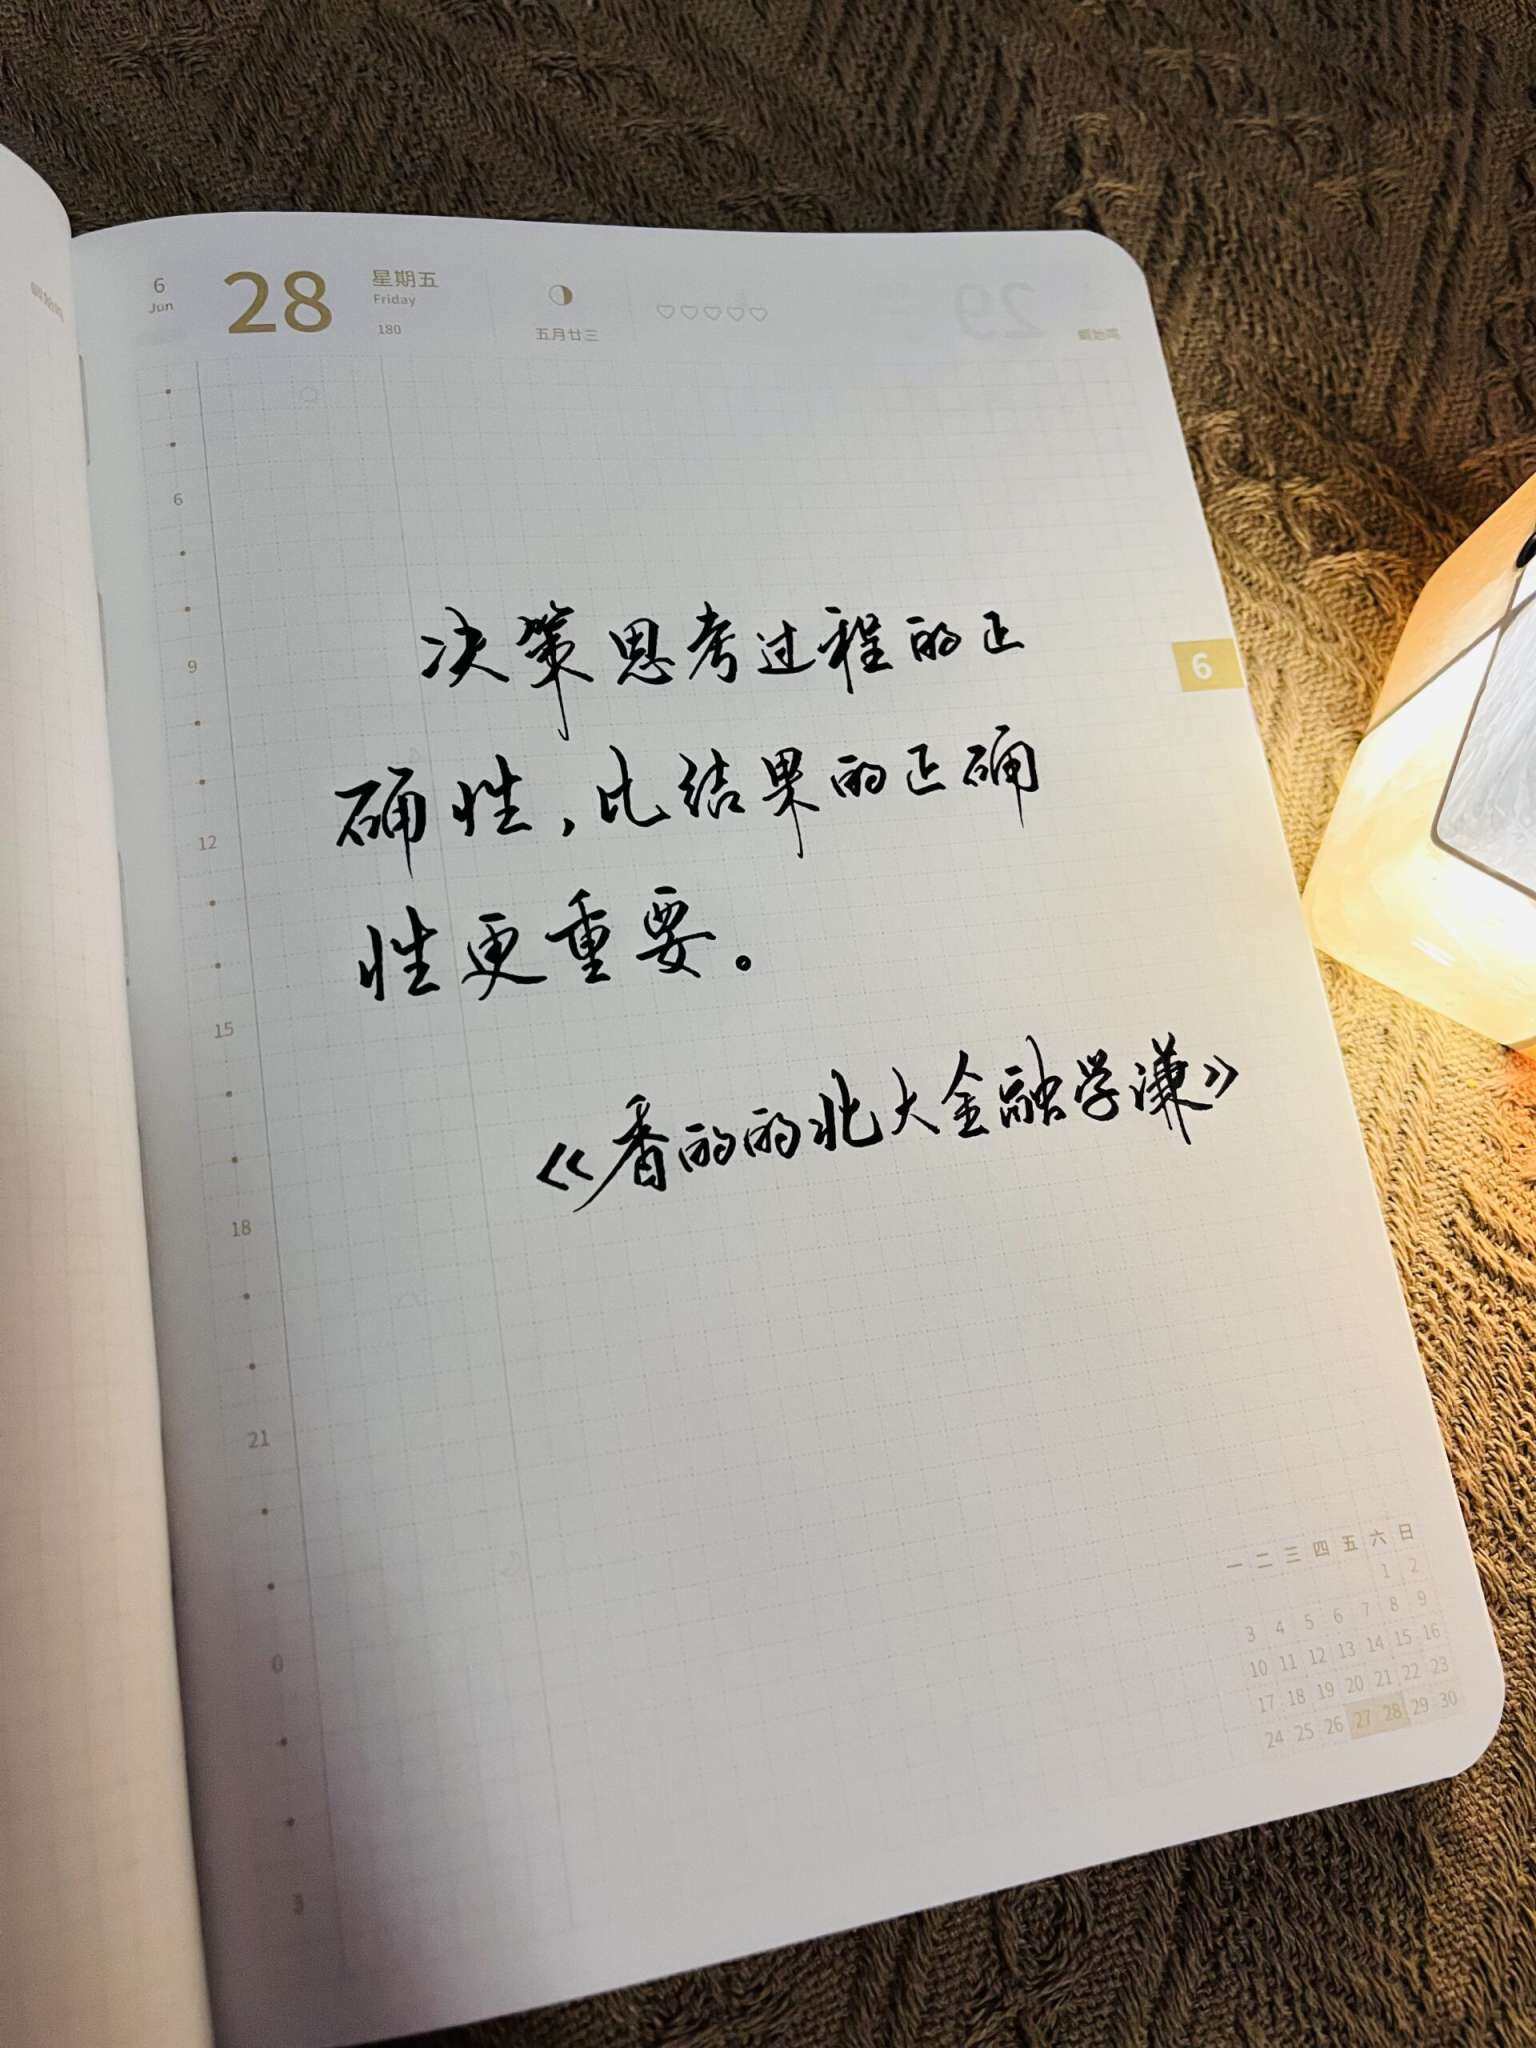 6
Jun
28
星期五
Friday
180
五月廿三
29
6
9
12
15
18
21
0
3
6
决策思考过程的正
确性，比结果的正确
性更重要。
《香的的北大金融学课》
一 二 三 四 五 六 日
1 2
3 4 5 6 7 8 9
10 11 12 13 14 15 16
17 18 19 20 21 22 23
24 25 26 27 28 29 30